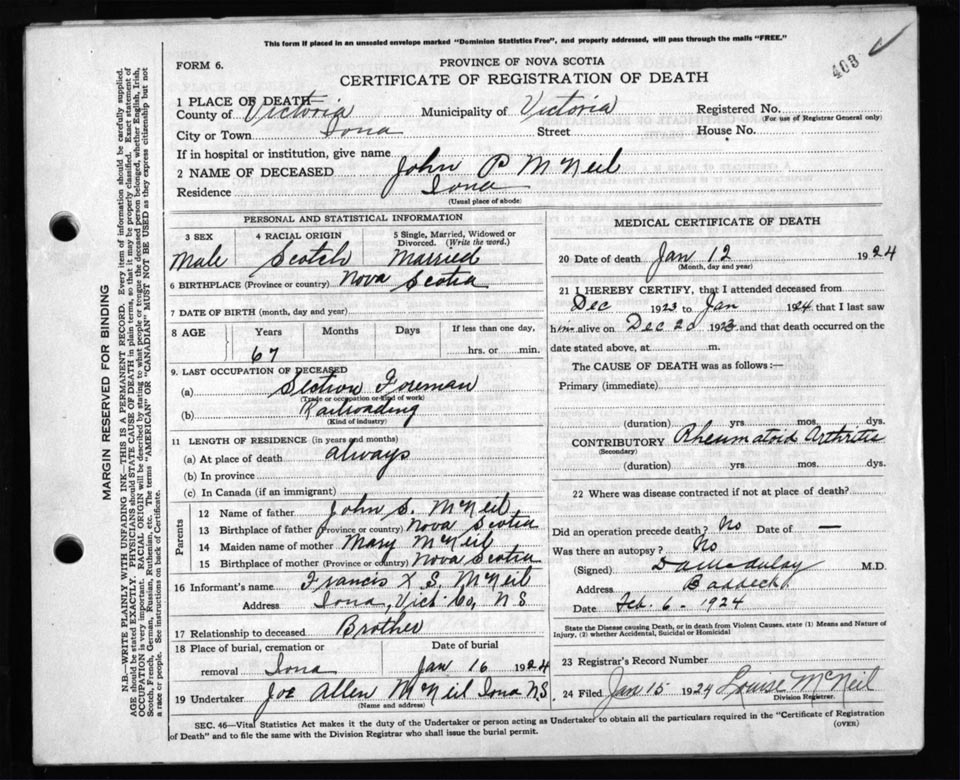 This form if placed in an unsealed envelope marked "Dominion Statistics Free", and properly addressed, will pass through the mails "FREE."
403
FORM 6.
PROVINCE OF NOVA SCOTIA
CERTIFICATE OF REGISTRATION OF DEATH
1 PLACE OF DEATH
County of Victoria Municipality of Victoria Registered No.
(For use of Registrar General only)
City or Town Iona Street House No.
If in hospital or institution, give name
2 NAME OF DECEASED John P McNeil
Residence Iona
(Usual place of abode)
PERSONAL AND STATISTICAL INFORMATION
3 SEX 4 RACIAL ORIGIN 5 Single, Married, Widowed or
Divorced. (Write the word.)
Male Scotch Married
6 BIRTHPLACE (Province or country) Nova Scotia
7 DATE OF BIRTH (month, day and year)
8 AGE Years Months Days If less than one day,
67 hrs. or min.
9. LAST OCCUPATION OF DECEASED
(a) Section Foreman
(Trade or occupation or kind of work)
(b) Railroading
(Kind of industry)
11 LENGTH OF RESIDENCE (in years and months)
(a) At place of death always
(b) In province
(c) In Canada (if an immigrant)
Parents
12 Name of father John S. McNeil
13 Birthplace of father (Province or country) Nova Scotia
14 Maiden name of mother Mary McNeil
15 Birthplace of mother (Province or country) Nova Scotia
16 Informant's name Francis X. S. McNeil
Address Iona, Vict. Co, N S
17 Relationship to deceased Brother
18 Place of burial, cremation or Date of burial
removal Iona Jan 16 1924
19 Undertaker Joe Allen McNeil Iona NS
(Name and address)
MEDICAL CERTIFICATE OF DEATH
20 Date of death Jan 12 1924
(Month, day and year)
21 I HEREBY CERTIFY, that I attended deceased from
Dec 1923 to Jan 1924 that I last saw
him alive on Dec 20 1923 and that death occurred on the
date stated above, at m.
The CAUSE OF DEATH was as follows:—
Primary (immediate)
(duration) yrs. mos. dys.
CONTRIBUTORY Rheumatoid Arthritis
(Secondary)
(duration) yrs. mos. dys.
22 Where was disease contracted if not at place of death?
Did an operation precede death? No Date of —
Was there an autopsy? No
(Signed) M.D.
Address Baddeck
Date Feb. 6 - 1924
State the Disease causing Death, or in death from Violent Causes, state (1) Means and Nature of
Injury, (2) whether Accidental, Suicidal or Homicidal
23 Registrar's Record Number
24 Filed Jan 15 1924 Louise McNeil
Division Registrar.
SEC. 46—Vital Statistics Act makes it the duty of the Undertaker or person acting as Undertaker to obtain all the particulars required in the "Certificate of Registration
of Death" and to file the same with the Division Registrar who shall issue the burial permit.
(OVER)
MARGIN RESERVED FOR BINDING
N.B.—WRITE PLAINLY WITH UNFADING INK—THIS IS A PERMANENT RECORD. Every item of information should be carefully supplied.
AGE should be stated EXACTLY. PHYSICIANS should STATE CAUSE OF DEATH in plain terms, so that it may be properly classified. Exact statement of
OCCUPATION is very important. RACIAL ORIGIN will be described by stating to what people or tongue the deceased person belonged, whether English, Irish,
Scotch, French, German, Russian, Ruthenian, etc. The terms "AMERICAN" OR "CANADIAN" MUST NOT BE USED as they express citizenship but not
a race or people. See instructions on back of Certificate.